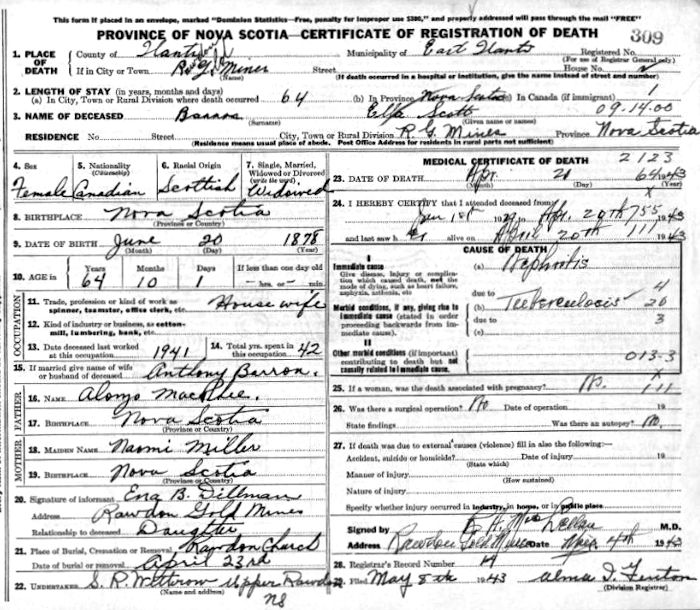 This form if placed in an envelope, marked "Dominion Statistics—Free, penalty for improper use $300," and properly addressed will pass through the mail "FREE"
PROVINCE OF NOVA SCOTIA—CERTIFICATE OF REGISTRATION OF DEATH 309
1. PLACE OF DEATH
County of Hants Municipality of East Hants Registered No.
(For use of Registrar General only)
If in City or Town R. G. Mines Street House No.
(Name) (If death occurred in a hospital or institution, give the name instead of street and number)
2. LENGTH OF STAY (in years, months and days)
(a) In City, Town or Rural Division where death occurred 64 (b) In Province Nova Scotia (c) In Canada (if immigrant) 1
3. NAME OF DECEASED Barron Scott 09-14.00
(Surname) (Given name or names)
RESIDENCE No. Street City, Town or Rural Division R. G. Mines Province Nova Scotia
(Residence means usual place of abode. Post Office Address for residents in rural parts not sufficient)
4. Sex
Female
5. Nationality
(Citizenship)
Canadian
6. Racial Origin
Scottish
7. Single, Married, Widowed or Divorced
(write the word)
Widowed
8. BIRTHPLACE Nova Scotia
(Province or Country)
9. DATE OF BIRTH June 20 1878
(Month) (Day) (Year)
10. AGE in Years Months Days If less than one day old
64 10 1 hrs. or min.
OCCUPATION
11. Trade, profession or kind of work as spinner, teamster, office clerk, etc. House wife
12. Kind of industry or business, as cotton-mill, lumbering, bank, etc.
13. Date deceased last worked at this occupation 1941
14. Total yrs. spent in this occupation 42
15. If married give name of wife or husband of deceased Anthony Barron.
FATHER
16. NAME Alonzo MacPhee.
17. BIRTHPLACE Nova Scotia
(Province or Country)
MOTHER
18. MAIDEN NAME Naomi Miller
19. BIRTHPLACE Nova Scotia
(Province or Country)
20. Signature of informant Ena B. Dillman
Address Rawdon Gold Mines
Relationship to deceased Daughter
21. Place of Burial, Cremation or Removal Rawdon Church
Date of burial or removal April 23rd
22. UNDERTAKER S. R. Upper Rawdon
(Name and address)
NS
MEDICAL CERTIFICATE OF DEATH 2123
23. DATE OF DEATH Apr. 21 1943
(Month) (Day) (Year)
64
x
24. I HEREBY CERTIFY that I attended deceased from
Jan 1st to Apr. 20th 1943
755
and last saw h alive on April 20th 1943
111
CAUSE OF DEATH
I
Immediate cause
Give disease, injury or complication which caused death, not the mode of dying, such as heart failure, asphyxia, asthenia, etc
(a) Nephritis
due to 4
Morbid conditions, if any, giving rise to immediate cause (stated in order proceeding backwards from immediate cause)
(b) Tuberculosis 20
due to 3
(c)
II
Other morbid conditions (if important) contributing to death but not causally related to immediate cause.
013-3
x
25. If a woman, was the death associated with pregnancy? No. 111
26. Was there a surgical operation? No Date of operation 19
State findings Was there an autopsy? No.
27. If death was due to external causes (violence) fill in also the following:—
Accident, suicide or homicide? Date of injury 19
(State which)
Manner of injury
(How sustained)
Nature of injury
Specify whether injury occurred in industry, in home, or in public place
Signed by M.D.
Address Rawdon Gold Mines Date 4th 1943
28. Registrar's Record Number 14
29. Filed May 8th 1943 Alma I. Fenton
(Division Registrar)